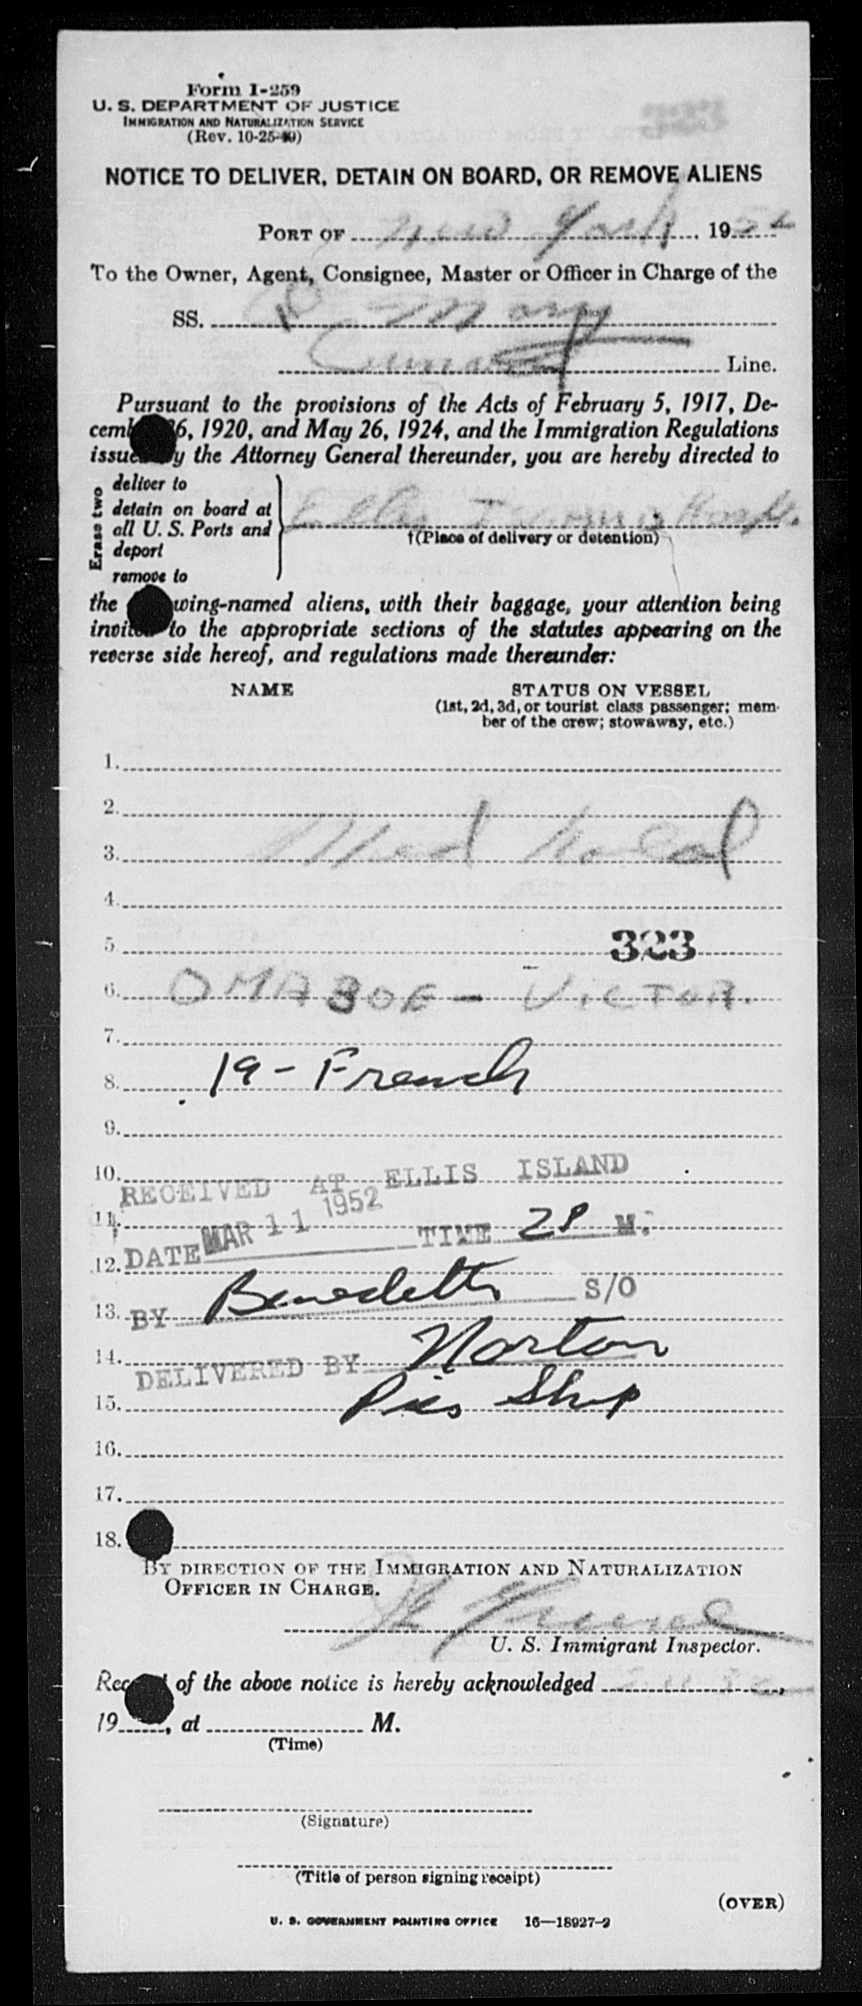 Form I-259
U. S. DEPARTMENT OF JUSTICE
IMMIGRATION AND NATURALIZATION SERVICE
(Rev. 10-25-49)
NOTICE TO DELIVER, DETAIN ON BOARD, OR REMOVE ALIENS
PORT OF New York, 1952
To the Owner, Agent, Consignee, Master or Officer in Charge of the
SS. Q Mary
Cunard Line.
Pursuant to the provisions of the Acts of February 5, 1917, De-
cemb 6, 1920, and May 26, 1924, and the Immigration Regulations
issued by the Attorney General thereunder, you are hereby directed to
Erase two
deliver to
detain on board at
all U. S. Ports and
deport
remove to
Ellis
†(Place of delivery or detention)
the wing-named aliens, with their baggage, your attention being
invited to the appropriate sections of the statutes appearing on the
reverse side hereof, and regulations made thereunder:
NAME STATUS ON VESSEL
(1st, 2d, 3d, or tourist class passenger; mem-
ber of the crew; stowaway, etc.)
1.
2.
3. Med
4.
5. 323
6. OMABOE - VICTOR.
7.
8. 19 - French
9.
10. RECEIVED AT ELLIS ISLAND
11. DATE MAR 11 1952 TIME 2P M.
12.
13. BY Benedetto S/O
14. DELIVERED BY Norton
15. Ship
16.
17.
18.
BY DIRECTION OF THE IMMIGRATION AND NATURALIZATION
OFFICER IN CHARGE.
U. S. Immigrant Inspector.
Rec of the above notice is hereby acknowledged
19, at M.
(Time)
(Signature)
(Title of person signing receipt)
(OVER)
U. S. GOVERNMENT PRINTING OFFICE 16—18927-2